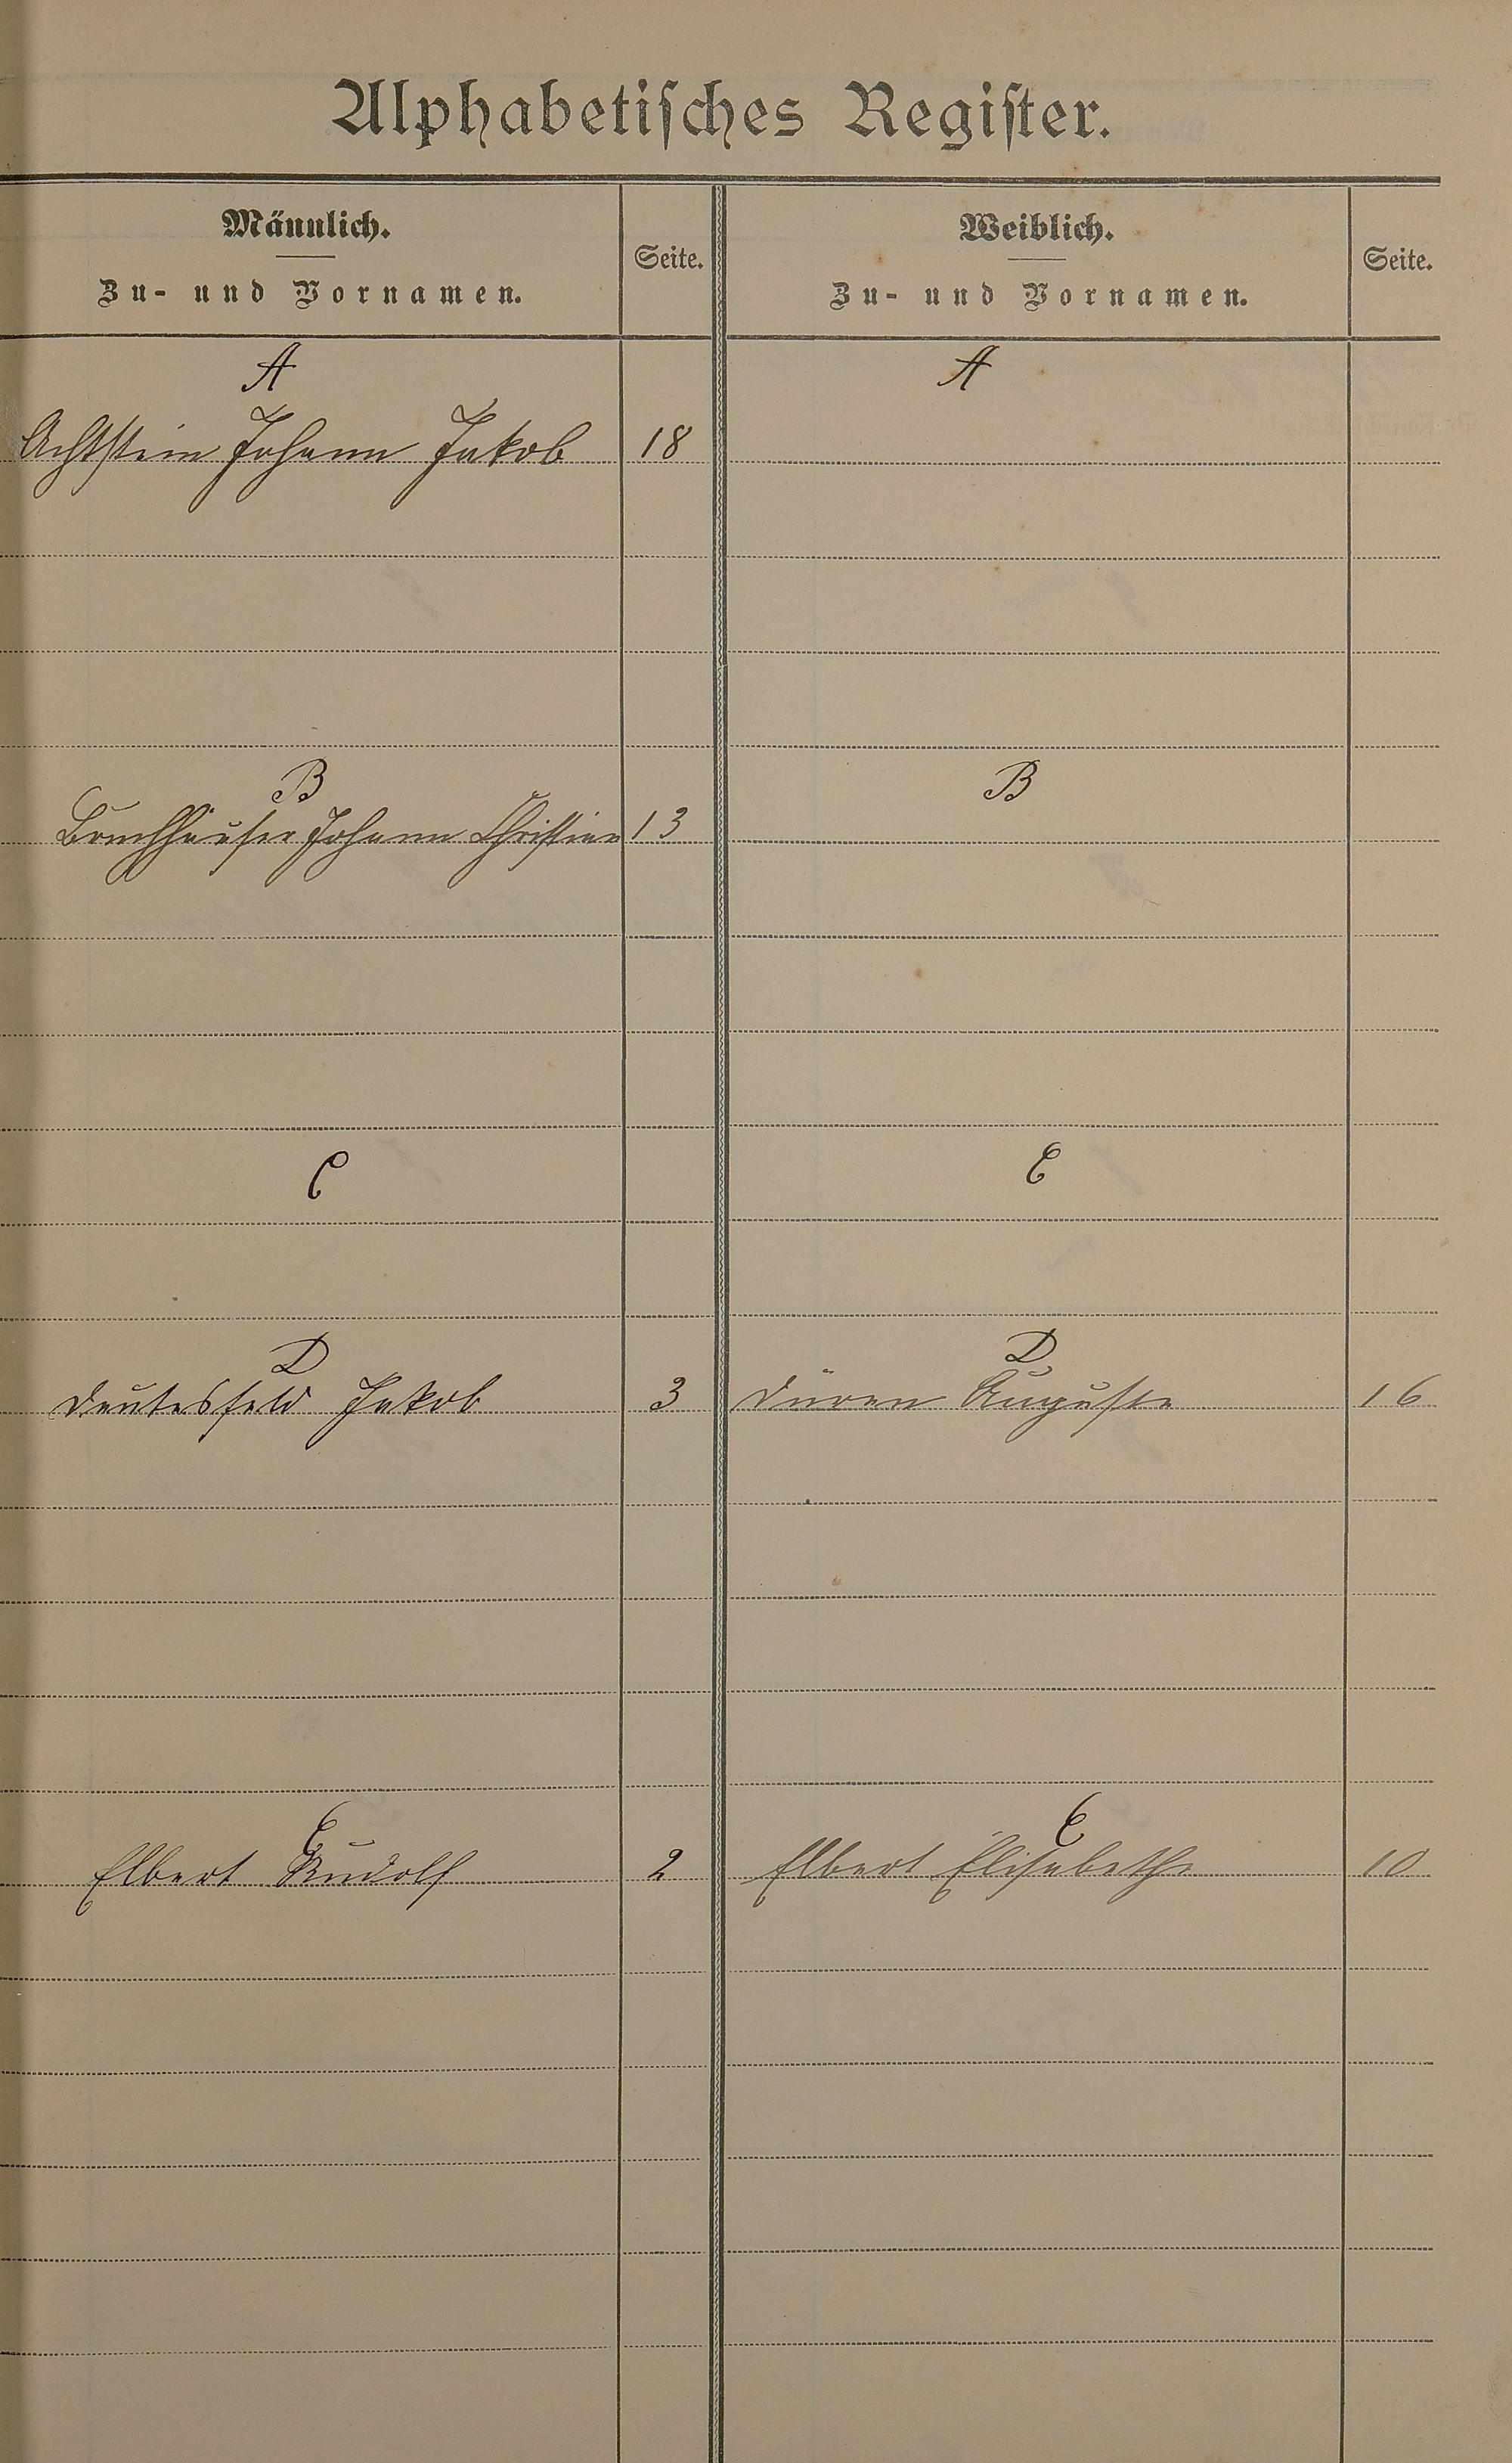 Alphabetisches Register.
Männlich.
Zu- und Vornamen.
Seite.
Weiblich.
Zu- und Vornamen.
Seite.
A
A
Achtstein Johann Jakob 18
B
B
Bruchhäuser Johann Christian 13
C
C
D
D
Deutesfeld Jakob 3
Düren Auguste 16
E
E
Elbert Rudolf 2
Elbert Elisabethe 10